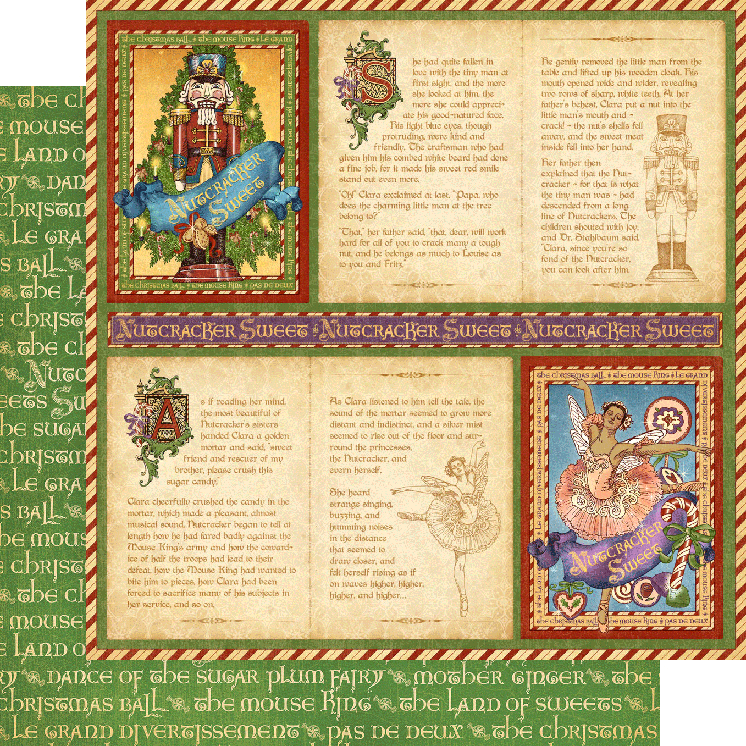 the christmas ball the mouse king le grand
Nutcracker
Sweet
the christmas ball the mouse king pas de deux
She had quite fallen in
love with the tiny man at
first sight, and the more
she looked at him, the
more she could appreci-
ate his good-natured face.
His light blue eyes, though
protruding, were kind and
friendly. The craftsman who had
given him his combed white beard had done
a fine job, for it made his sweet red smile
stand out even more.
"Oh!" Clara exclaimed at last. "Papa, who
does the charming little man at the tree
belong to?"
"That," her father said, "that, dear, will work
hard for all of you to crack many a tough
nut, and he belongs as much to Louise as
to you and Fritz."
He gently removed the little man from the
table and lifted up his wooden cloak. His
mouth opened wide and wider, revealing
two rows of sharp, white teeth. At her
father's behest, Clara put a nut into the
little man's mouth and -
crack! - the nut's shells fell
away, and the sweet meat
inside fell into her hand.
Her father then
explained that the Nut-
cracker - for that is what
the tiny man was - had
descended from a long
line of Nutcrackers. The
children shouted with joy
and Dr. Stahlbaum said
"Clara, since you're so
fond of the Nutcracker,
you can look after him.
Nutcracker Sweet Nutcracker Sweet Nutcracker Sweet
As if reading her mind,
the most beautiful of
Nutcracker's sisters
handed Clara a golden
mortar and said, "sweet
friend and rescuer of my
brother, please crush this
sugar candy."
Clara cheerfully crushed the candy in the
mortar, which made a pleasant, almost
musical sound, Nutcracker began to tell at
length how he had fared badly against the
Mouse King's army and how the coward-
ice of half the troops had lead to their
defeat, how the Mouse King had wanted to
bite him to pieces, how Clara had been
forced to sacrifice many of his subjects in
her service, and so on.
As Clara listened to him tell the tale, the
sound of the mortar seemed to grow more
distant and indistinct, and a silver mist
seemed to rise out of the floor and sur-
round the princesses,
the Nutcracker, and
even herself.
She heard
strange singing,
buzzing, and
humming noises
in the distance
that seemed to
draw closer, and
felt herself rising as if
on waves higher, higher,
higher, and higher...
the christmas ball the mouse king le grand
Nutcracker
Sweet
the christmas ball the mouse king pas de deux
dance of the sugar plum fairy mother ginger the
christmas ball the mouse king the land of sweets
Le grand divertissement pas de deux the christmas